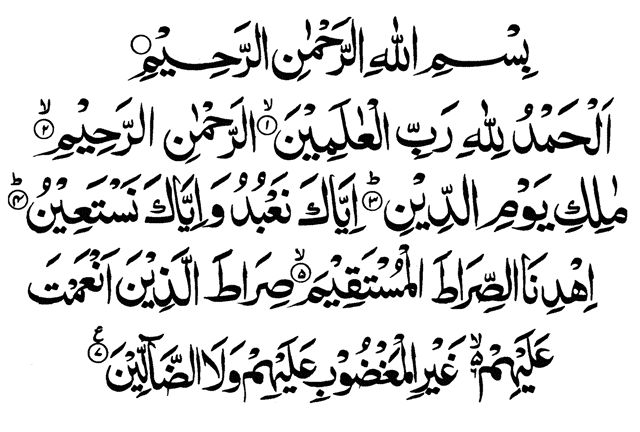 بِسْمِ اللهِ الرَّحْمٰنِ الرَّحِيْمِ ۝
اَلْحَمْدُ لِلّٰهِ رَبِّ الْعٰلَمِيْنَ ۙ﴿۱﴾ الرَّحْمٰنِ الرَّحِيْمِ ۙ﴿۲﴾
مٰلِكِ يَوْمِ الدِّيْنِ ؕ﴿۳﴾ اِيَّاكَ نَعْبُدُ وَ اِيَّاكَ نَسْتَعِيْنُ ؕ﴿۴﴾
اِهْدِنَا الصِّرَاطَ الْمُسْتَقِيْمَ ۙ﴿۵﴾ صِرَاطَ الَّذِيْنَ اَنْعَمْتَ
عَلَيْهِمْ ۙ۵ غَيْرِ الْمَغْضُوْبِ عَلَيْهِمْ وَلَا الضَّآلِّيْنَ ﴿۷﴾ ع